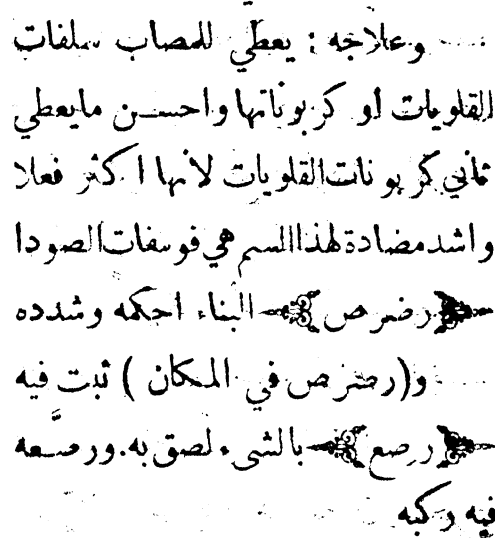 وعلاجه : يعطي للمصاب سلفات
القلويات او كربوناتها واحسن مايعطي
ثاني كربونات القلويات لأنها اكثر فعلا
واشد مضادة لهذا السم هي فوسفات الصودا
﴿ رضرص ﴾ البناء احكمه وشدده
و(رضرص في المكان ) ثبت فيه
﴿ رصع ﴾ بالشيء لصق به. ورصَّعه
فيه ركبه